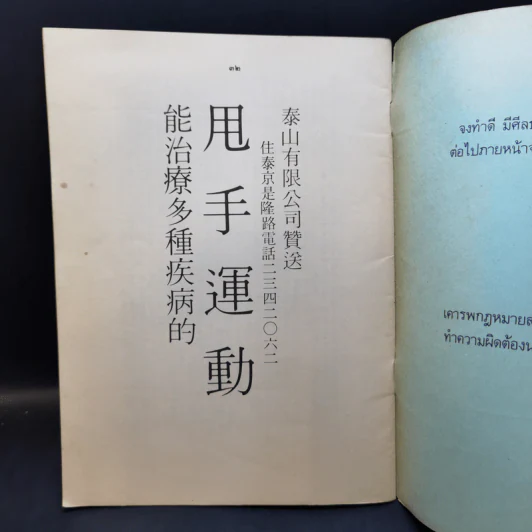 ๓๒
泰山有限公司贊送
住泰京是隆路電話二三四二〇六二
甩手運動
能治療多種疾病的
จงทำดี มีศีล
ต่อไปภายหน้าจ
เคารพกฎหมาย
ทำความผิดต้อง